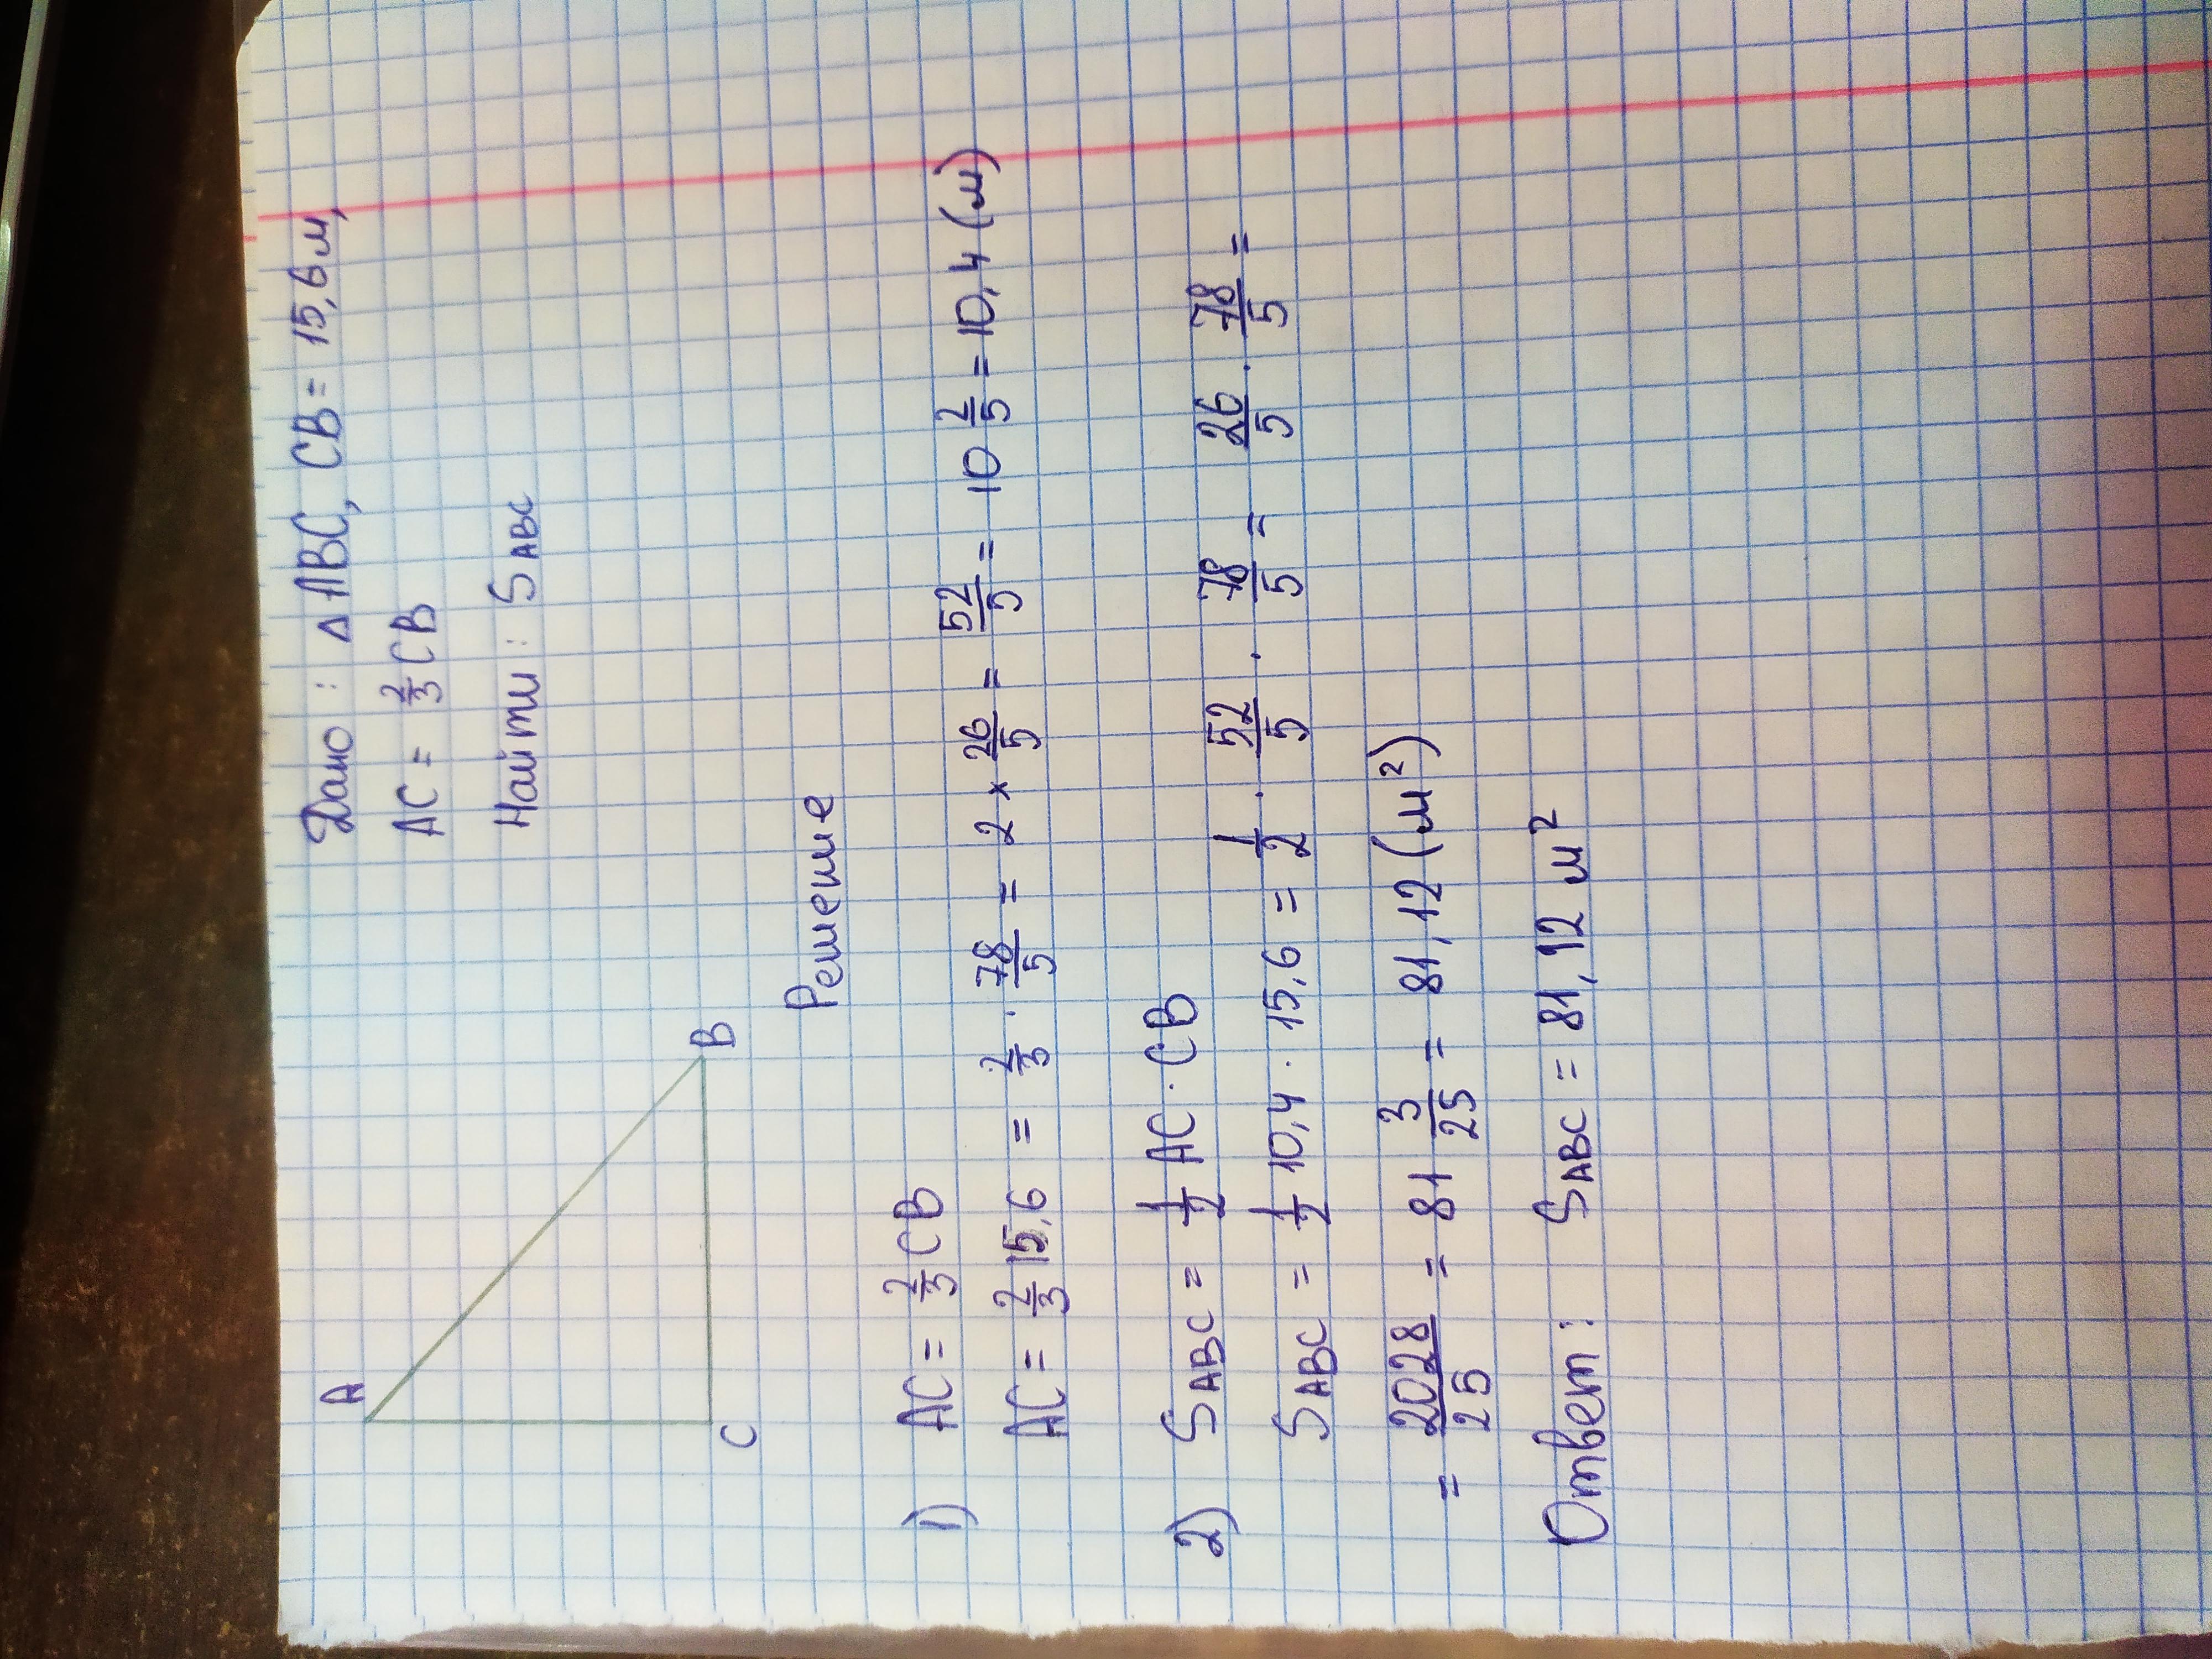 A
C
B
Дано: Δ ABC, CB = 15,6 м,
AC = 2/3 CB
Найти: S ABC
Решение
1) AC = 2/3 CB
AC = 2/3 15,6 = 2/3 · 78/5 = 2 × 26/5 = 52/5 = 10 2/5 = 10,4 (м)
2) S ABC = 1/2 AC · CB
S ABC = 1/2 10,4 · 15,6 = 1/2 · 52/5 · 78/5 = 26/5 · 78/5 =
= 2028/25 = 81 3/25 = 81,12 (м²)
Ответ: S ABC = 81,12 м²